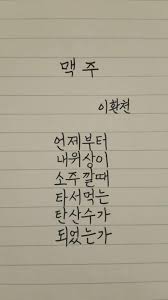 맥 주
이환천
언제부터
내위상이
소주 깔때
타서먹는
탄산수가
되었는가